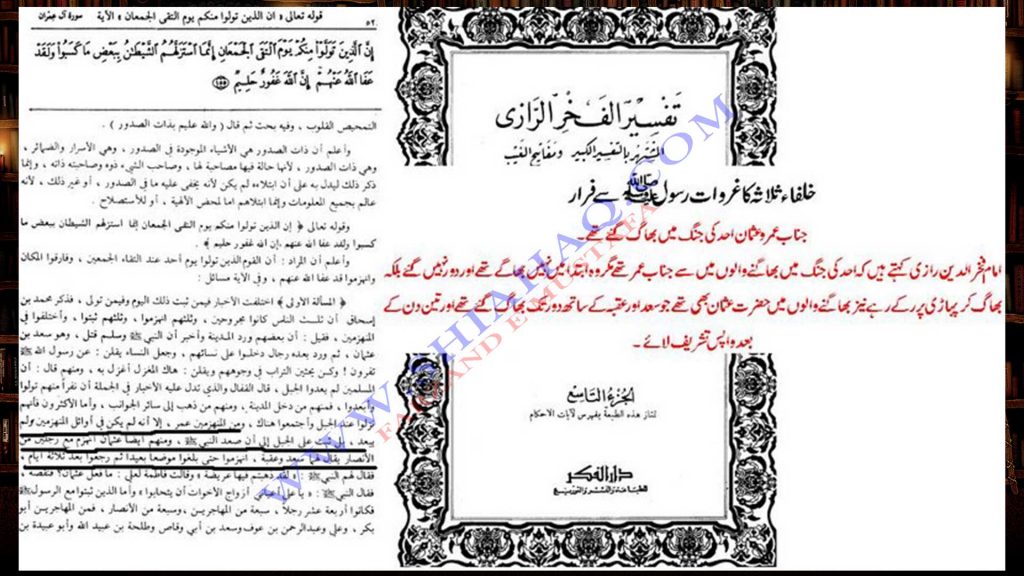 قوله تعالى « ان الذين تولوا منكم يوم التقى الجمعان » الآية
سورة آل عمران
٥٢
إِنَّ ٱلَّذِينَ تَوَلَّوْا۟ مِنكُمْ يَوْمَ ٱلْتَقَى ٱلْجَمْعَانِ إِنَّمَا ٱسْتَزَلَّهُمُ ٱلشَّيْطَٰنُ بِبَعْضِ مَا كَسَبُوا۟ وَلَقَدْ
عَفَا ٱللَّهُ عَنْهُمْ إِنَّ ٱللَّهَ غَفُورٌ حَلِيمٌ ﴿١٥٥﴾
التمحيص القلوب ، وفيه بحث ثم قال ( والله عليم بذات الصدور ) .
وأعلم أن ذات الصدور هي الأشياء الموجودة في الصدور ، وهي الأسرار والضمائر ،
وهي ذات الصدور ، لأنها حالة فيها مصاحبة لها ، وصاحب الشيء ذوه وصاحبته ذاته ، وإنما
ذكر ذلك ليدل به على أن ابتلاءه لم يكن لأنه يخفى عليه ما في الصدور ، أو غير ذلك ، لأنه
عالم بجميع المعلومات وإنما ابتلاهم اما لمحض الالهية ، أو للأستصلاح .
وقوله تعالى ﴿ إن الذين تولوا منكم يوم التقى الجمعان إنما استزلهم الشيطان ببعض ما
كسبوا ولقد عفا الله عنهم .إن الله غفور حليم ﴾ .
وأعلم أن المراد : أن القوم الذين تولوا يوم أحد عند التقاء الجمعين ، وفارقوا المكان
وانهزموا قد عفا الله عنهم ، وفي الآية مسائل :
﴿ المسألة الأولى ﴾ اختلفت الأخبار فيمن ثبت ذلك اليوم وفيمن تولى ، فذكر محمد بن
إسحاق أن ثلث الناس كانوا مجروحين ، وثلثهم انهزموا ، وثلثهم ثبتوا ، وأختلفوا في
المنهزمين ، فقيل : أن بعضهم ورد المدينة وأخبر أن النبي ﷺ وسلم قتل ، وهو سعد بن
عثمان ، ثم ورد بعده رجال دخلوا على نسائهم ، وجعل النساء يقلن : عن رسول الله ﷺ
تفرون ! وكن يحثين التراب في وجوههم ويقلن : هاك المغزل أغزل به ، ومنهم قال : أن
المسلمين لم يعدوا الجبل ، قال القفال والذي تدل عليه الأخبار في الجملة أن نفرا منهم تولوا
وأبعدوا ، فمنهم من دخل المدينة ، ومنهم من ذهب إلى سائر الجوانب ، وأما الأكثرون فأنهم
نزلوا عند الجبل وأجتمعوا هناك ، ومن المنهزمين عمر ، إلا أنه لم يكن في أوائل المنهزمين ولم
يبعد ، بل ثبت على الجبل إلى أن صعد النبي ﷺ ، ومنهم أيضا عثمان انهزم مع رجلين من
الأنصار يقال لهما سعد وعقبة ، انهزموا حتى بلغوا موضعا بعيدا ثم رجعوا بعد ثلاثة أيام ،
فقال لهم النبي ﷺ « لقد ذهبتم فيها عريضة » وقالت فاطمة لعلي : ما فعل عثمان؟ فنقصه ،
فقال النبي ﷺ : « يا علي أعياني أزواج الأخوات أن يتحابوا » وأما الذين ثبتوا مع الرسول ﷺ
فكانوا أربعة عشر رجلا ، سبعة من المهاجرين ، وسبعة من الأنصار ، فمن المهاجرين أبو
بكر ، وعلي وعبدالرحمن بن عوف وسعد بن أبي وقاص وطلحة بن عبيد الله وأبو عبيدة بن
تفسير الفخر الرازي
المشتهر بالتفسير الكبير ومفاتيح الغيب
خلفاء ثلاثہ کا غزوات رسول ﷺ سے فرار
جناب عمر و عثمان احد کی جنگ میں بھاگ گئے تھے۔
امام فخر الدین رازی کہتے ہیں کہ احد کی جنگ میں بھاگنے والوں میں سے جناب عمر تھے مگر وہ ابتدا میں نہیں بھاگے تھے اور دور نہیں گئے بلکہ
بھاگ کر پہاڑی پر رکے رہے نیز بھاگنے والوں میں حضرت عثمان بھی تھے جو سعد اور عقبہ کے ساتھ دور تک بھاگ گئے تھے اور تین دن کے
بعد واپس تشریف لائے۔
الجزء التاسع
تمتاز هذه الطبعة بفهرس لآيات الاحكام
دار الفكر
للطباعة والنشر والتوزيع
WWW.SHIAHAQ.COM